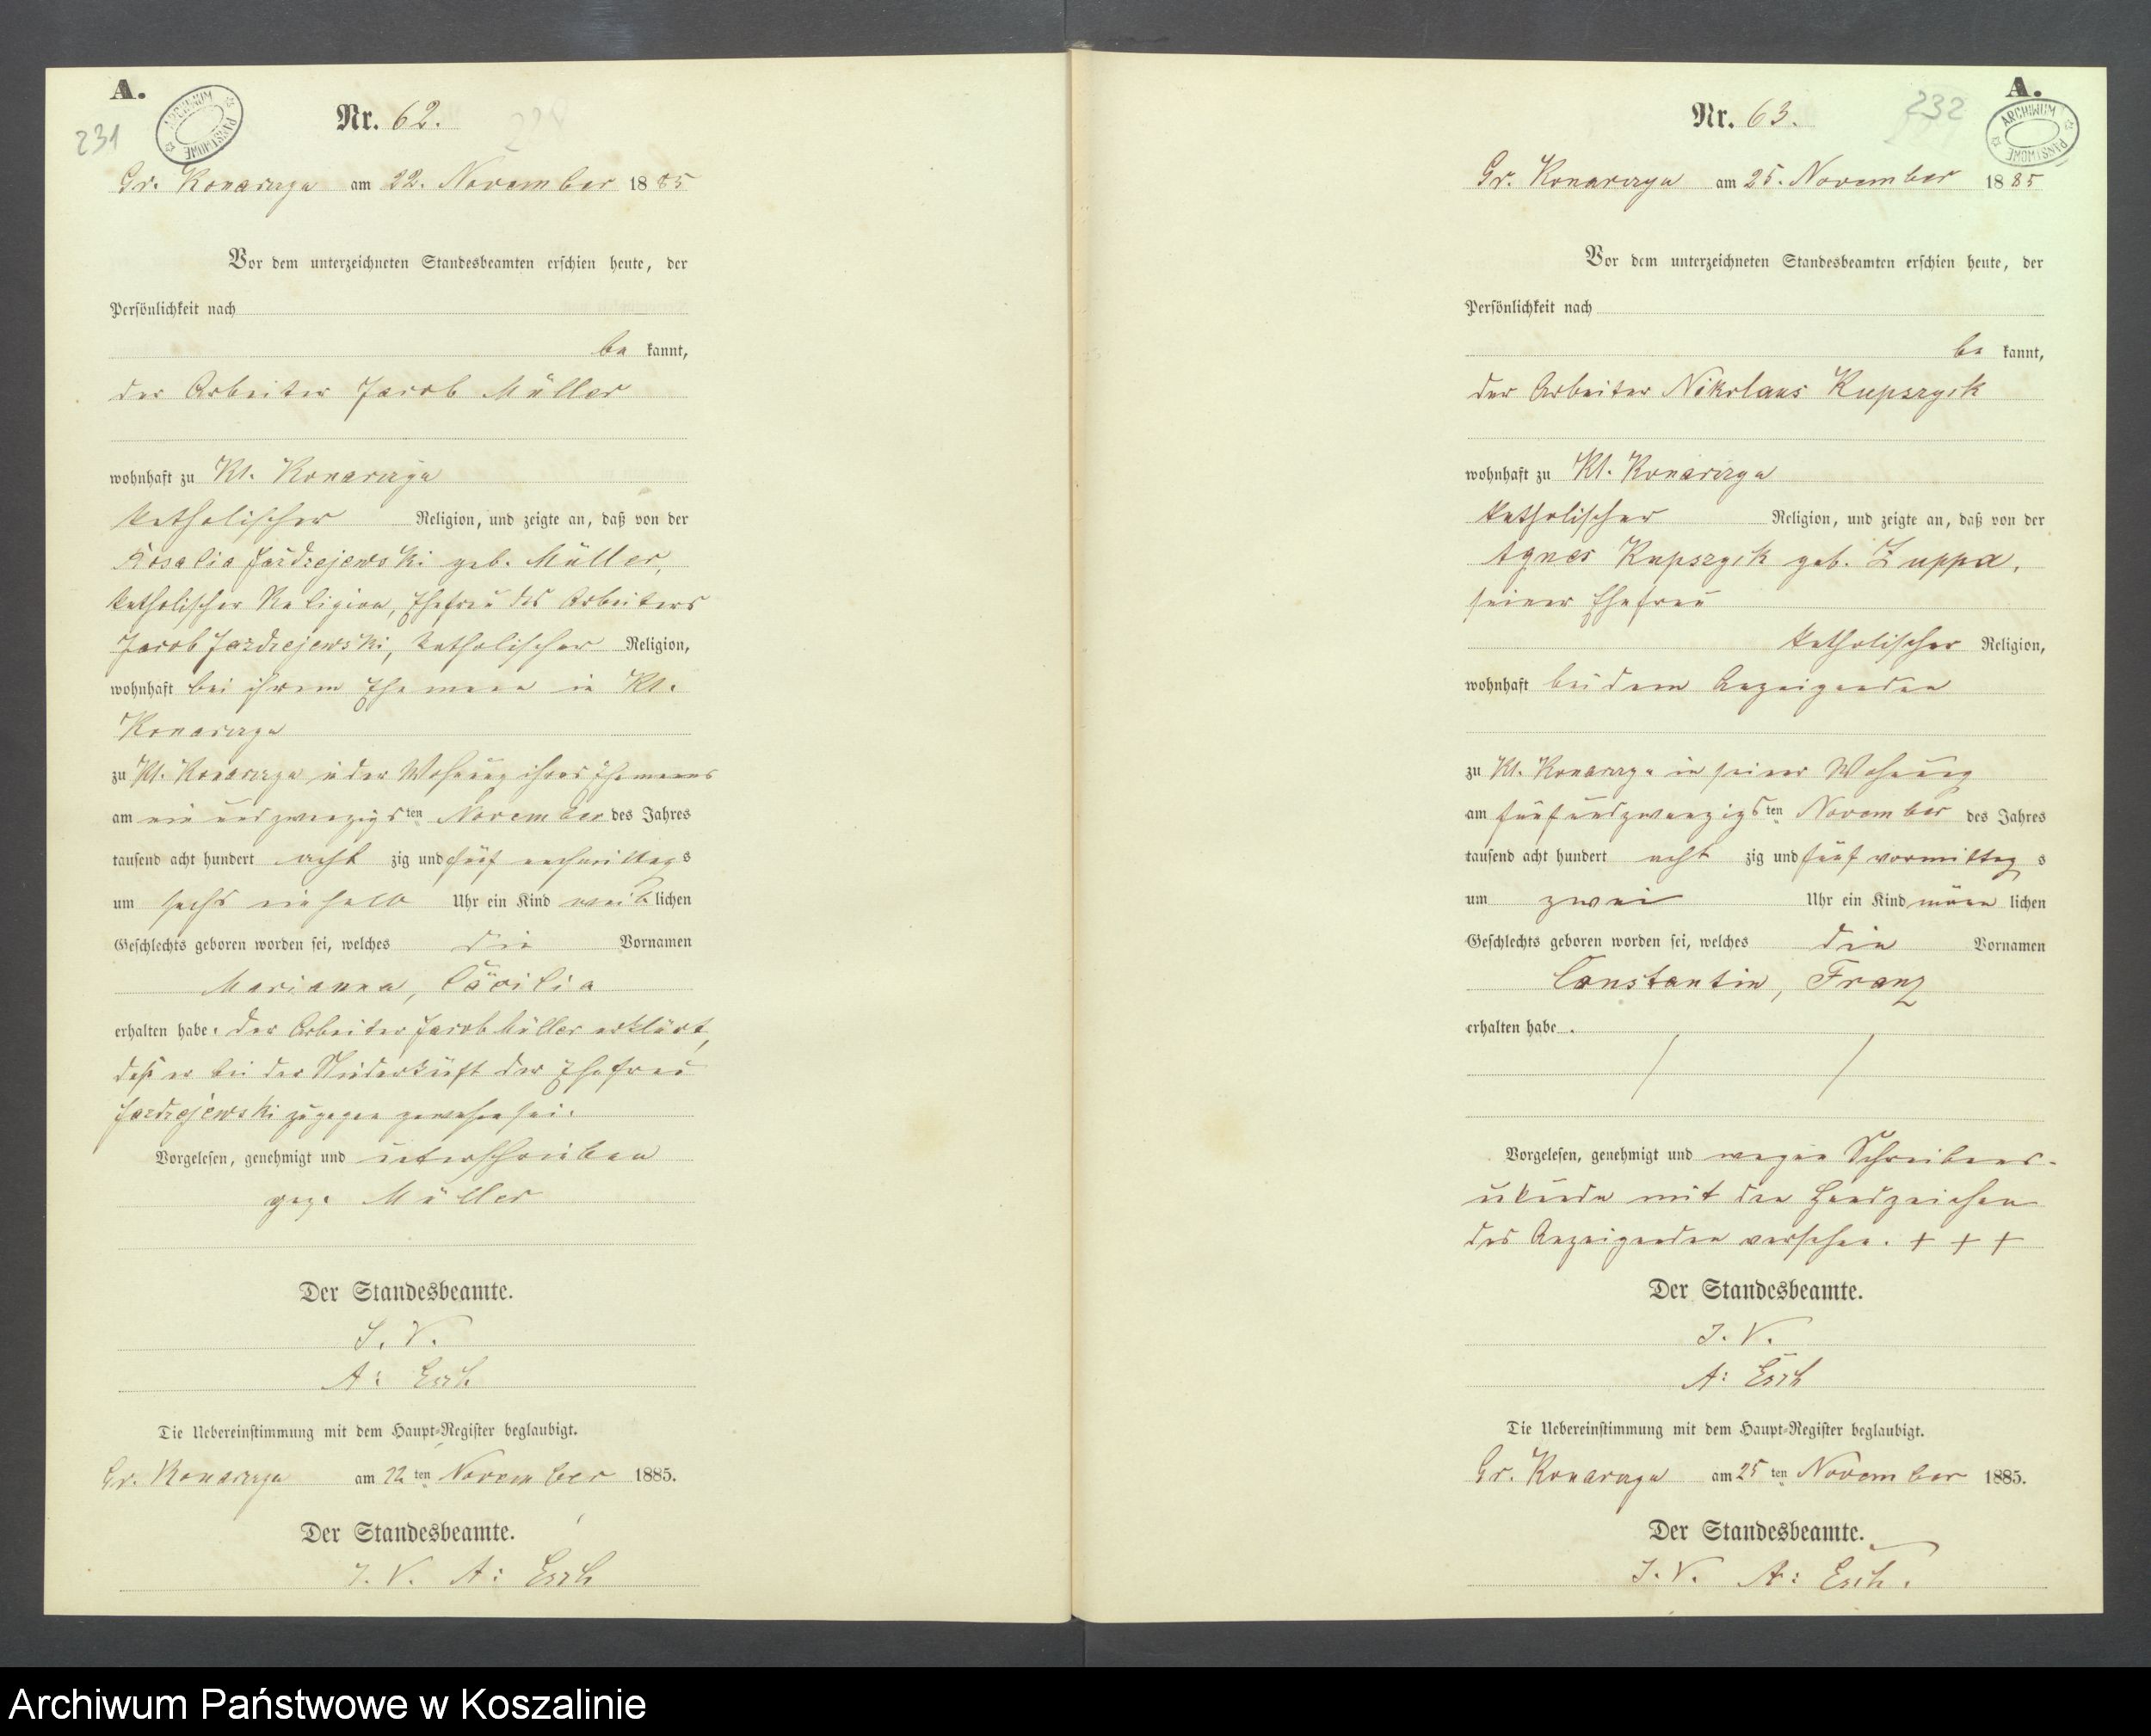 A.
231
ARCHIWUM PAŃSTWOWE
Nr. 62.
Gr. Konarczyn am 22. November 1885
Vor dem unterzeichneten Standesbeamten erschien heute, der
Persönlichkeit nach
be kannt,
der Arbeiter Jacob Müller
wohnhaft zu Kl. Konarczyn
katholischer Religion, und zeigte an, daß von der
Rosalia Jazdzejewski geb. Müller,
katholischer Religion, Ehefrau des Arbeiters
Jacob Jazdzejewski, katholischer Religion,
wohnhaft bei ihrem Ehemann in Kl.
Konarczyn
zu Kl. Konarczyn in der Wohnung ihres Ehemanns
am ein und zwanzigsten November des Jahres
tausend acht hundert acht zig und fünf nachmittags
um sechs einhalb Uhr ein Kind weiblichen
Geschlechts geboren worden sei, welches die Vornamen
Marianna, Cäcilia
erhalten habe. Der Arbeiter Jacob Müller erklärt,
daß er bei der Niederkunft der Ehefrau
Jazdzejewski zugegen gewesen sei.
Vorgelesen, genehmigt und unterschrieben
gez. Müller
Der Standesbeamte.
I. V.
A: Esch
Die Uebereinstimmung mit dem Haupt-Register beglaubigt.
Gr. Konarczyn am 22ten November 1885.
Der Standesbeamte.
I. V. A: Esch
A.
232
ARCHIWUM PAŃSTWOWE
Nr. 63.
Gr. Konarczyn am 25. November 1885
Vor dem unterzeichneten Standesbeamten erschien heute, der
Persönlichkeit nach
be kannt,
der Arbeiter Nikolaus Kupszyck
wohnhaft zu Kl. Konarczyn
katholischer Religion, und zeigte an, daß von der
Agnes Kupszyck geb. Zuppa,
seiner Ehefrau
katholischer Religion,
wohnhaft bei dem Anzeigenden
zu Kl. Konarczyn in seiner Wohnung
am fünfundzwanzigsten November des Jahres
tausend acht hundert acht zig und fünf vormittags
um zwei Uhr ein Kind männlichen
Geschlechts geboren worden sei, welches die Vornamen
Constantin, Franz
erhalten habe.
Vorgelesen, genehmigt und wegen Schreibens-
unkunde mit den Handzeichen
des Anzeigenden versehen. + + +
Der Standesbeamte.
I. V.
A: Esch
Die Uebereinstimmung mit dem Haupt-Register beglaubigt.
Gr. Konarczyn am 25ten November 1885.
Der Standesbeamte.
I. V. A: Esch.
Archiwum Państwowe w Koszalinie